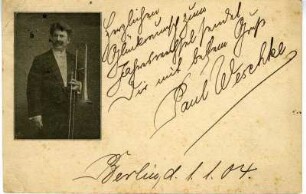 Herzlichen
Glückwunsch zum
Jahreswechsel sendet
Dir mit bestem Gruß
Paul Weschke
Berlin, d. 1.1.04.